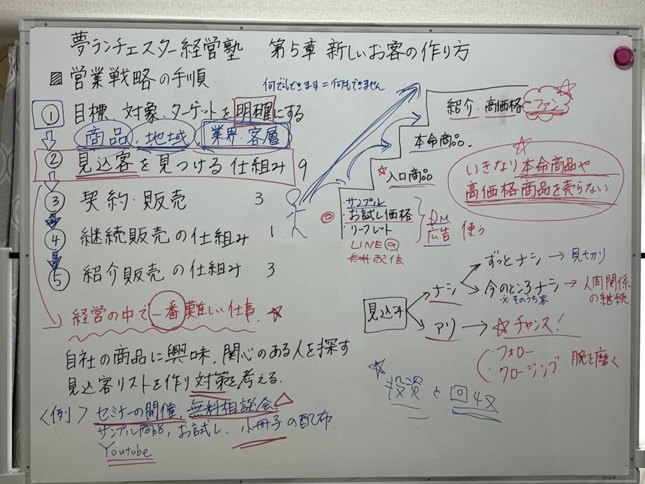 夢ランチェスター経営塾 第5章 新しいお客の作り方
営業戦略の手順
① 目標 対象、ターゲットを明確にする
商品、地域、業界・客層
② 見込客を見つける仕組み 9
③ 契約・販売 3
④ 継続販売の仕組み 1
⑤ 紹介販売の仕組み 3
経営の中で一番難しい仕事
自社の商品に興味、関心のある人を探す
見込客リストを作り対策を考える。
〈例〉セミナーの開催、無料相談会
サンプル商品、お試し、小冊子の配布
Youtube
何でもできます=何もできません
紹介・高価格 ファン
本命商品
入口商品
サンプル
お試し価格
リーフレット
LINE@
無料配信
DM
広告
使う
いきなり本命商品や
高価格商品を売らない
見込み
ナシ
ずっとナシ→見切り
今のところナシ→人間関係の継続
※そのうち客
アリ→チャンス!
フォロー
クロージング
腕を磨く
投資と回収